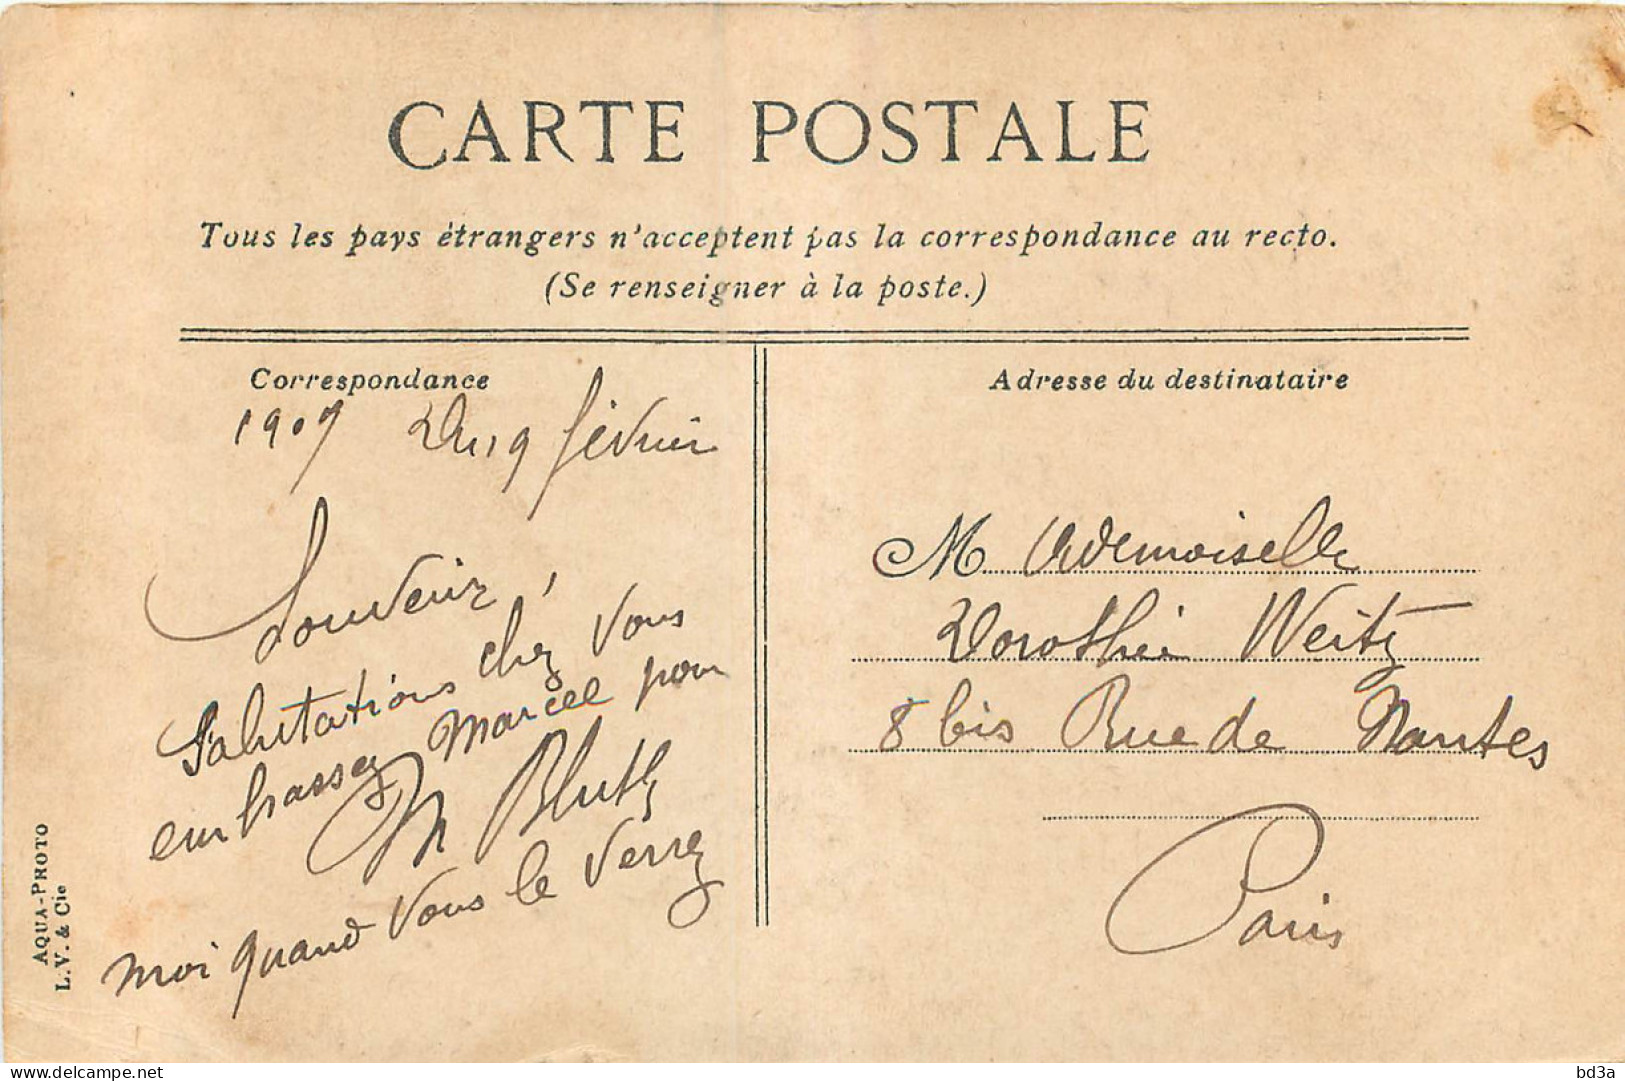 CARTE POSTALE
Tous les pays étrangers n'acceptent pas la correspondance au recto.
(Se renseigner à la poste.)
Correspondance
1907 Du 19 février
Souvenir,
Salutations chez vous
embrassez Marcel pour
M Bluth
moi quand vous le verrez
Adresse du destinataire
M ademoiselle
Dorothée Weitz
8 bis Rue de Nantes
Paris
AQUA-PHOTO
L. V. & Cie
delcampe.net
bd3a